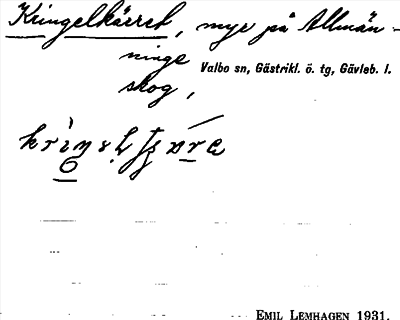 Kringelkäeret, myr på Allmän-
nings
Valbo sn, Gästrikl. ö. tg, Gävleb. l.
skog,
EMIL LEMHAGEN 1931.